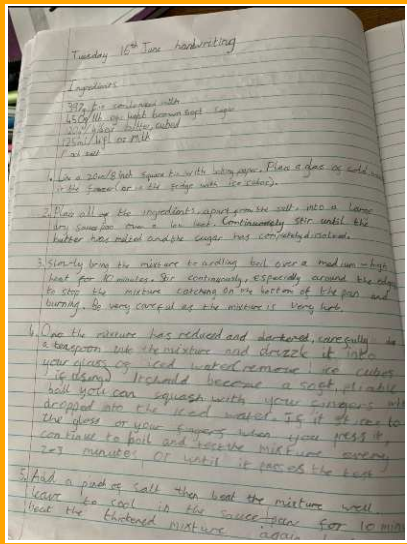 Tuesday 16th June handwriting
Ingredients
397g tin condensed milk
450g 1lb light brown soft sugar
butter, cubed
125ml milk
salt
1. Line a 20cm/8 inch square tin with baking paper. Place a glass of cold water
in the freezer (or in the fridge with ice cubes).
2. Place all of the ingredients, apart from the salt, into a large
dry saucepan over a low heat. Continuously stir until the
butter has melted and the sugar has completely dissolved.
3. Slowly bring the mixture to a boil over a medium-high
heat for 10 minutes. Stir continuously, especially around the edges
to stop the mixture catching on the bottom of the pan and
burning. Be very careful as the mixture is very hot.
4. Once the mixture has reduced and darkened, carefully
a teaspoon into the mixture and drizzle it into
your glass of iced water (remove ice cubes
if using). It should become a soft, pliable
ball you can squash with your fingers when
dropped into the iced water. If it sticks to
the glass or your fingers when you press it,
continue to boil and test the mixture every
2-3 minutes or until it passes the test
5. Add a pinch of salt then beat the mixture well
leave to cool in the saucepan for 10 minutes
beat the thickened mixture again